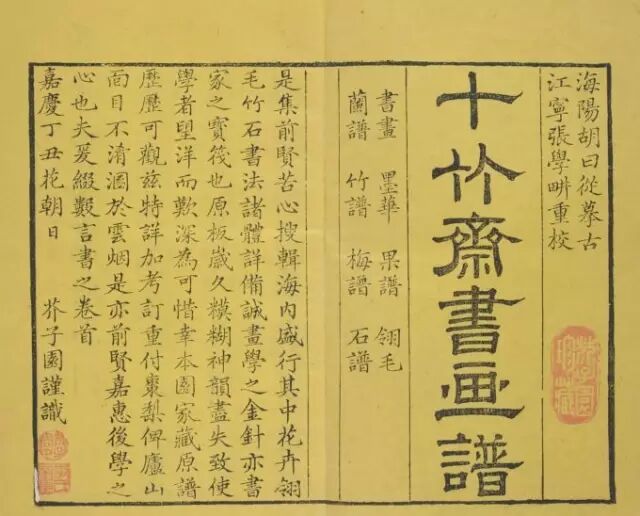 海陽胡曰從摹古
江寧張學畊重校
十竹齋書画譜
書畫 墨華 果譜 翎毛
蘭譜 竹譜 梅譜 石譜
是集前賢苦心搜輯海内盛行其中花卉翎
毛竹石書法諸體詳備誠畫學之金針亦書
家之寶筏也原板歲久糢糊神韻盡失致使
學者望洋而歎深為可惜幸本園家藏原譜
歷歷可觀茲特詳加考訂重付棗梨俾廬山
面目不淆溷於雲烟是亦前賢嘉惠後學之
心也夫爰綴數言書之卷首
嘉慶丁丑花朝日 芥子園謹識